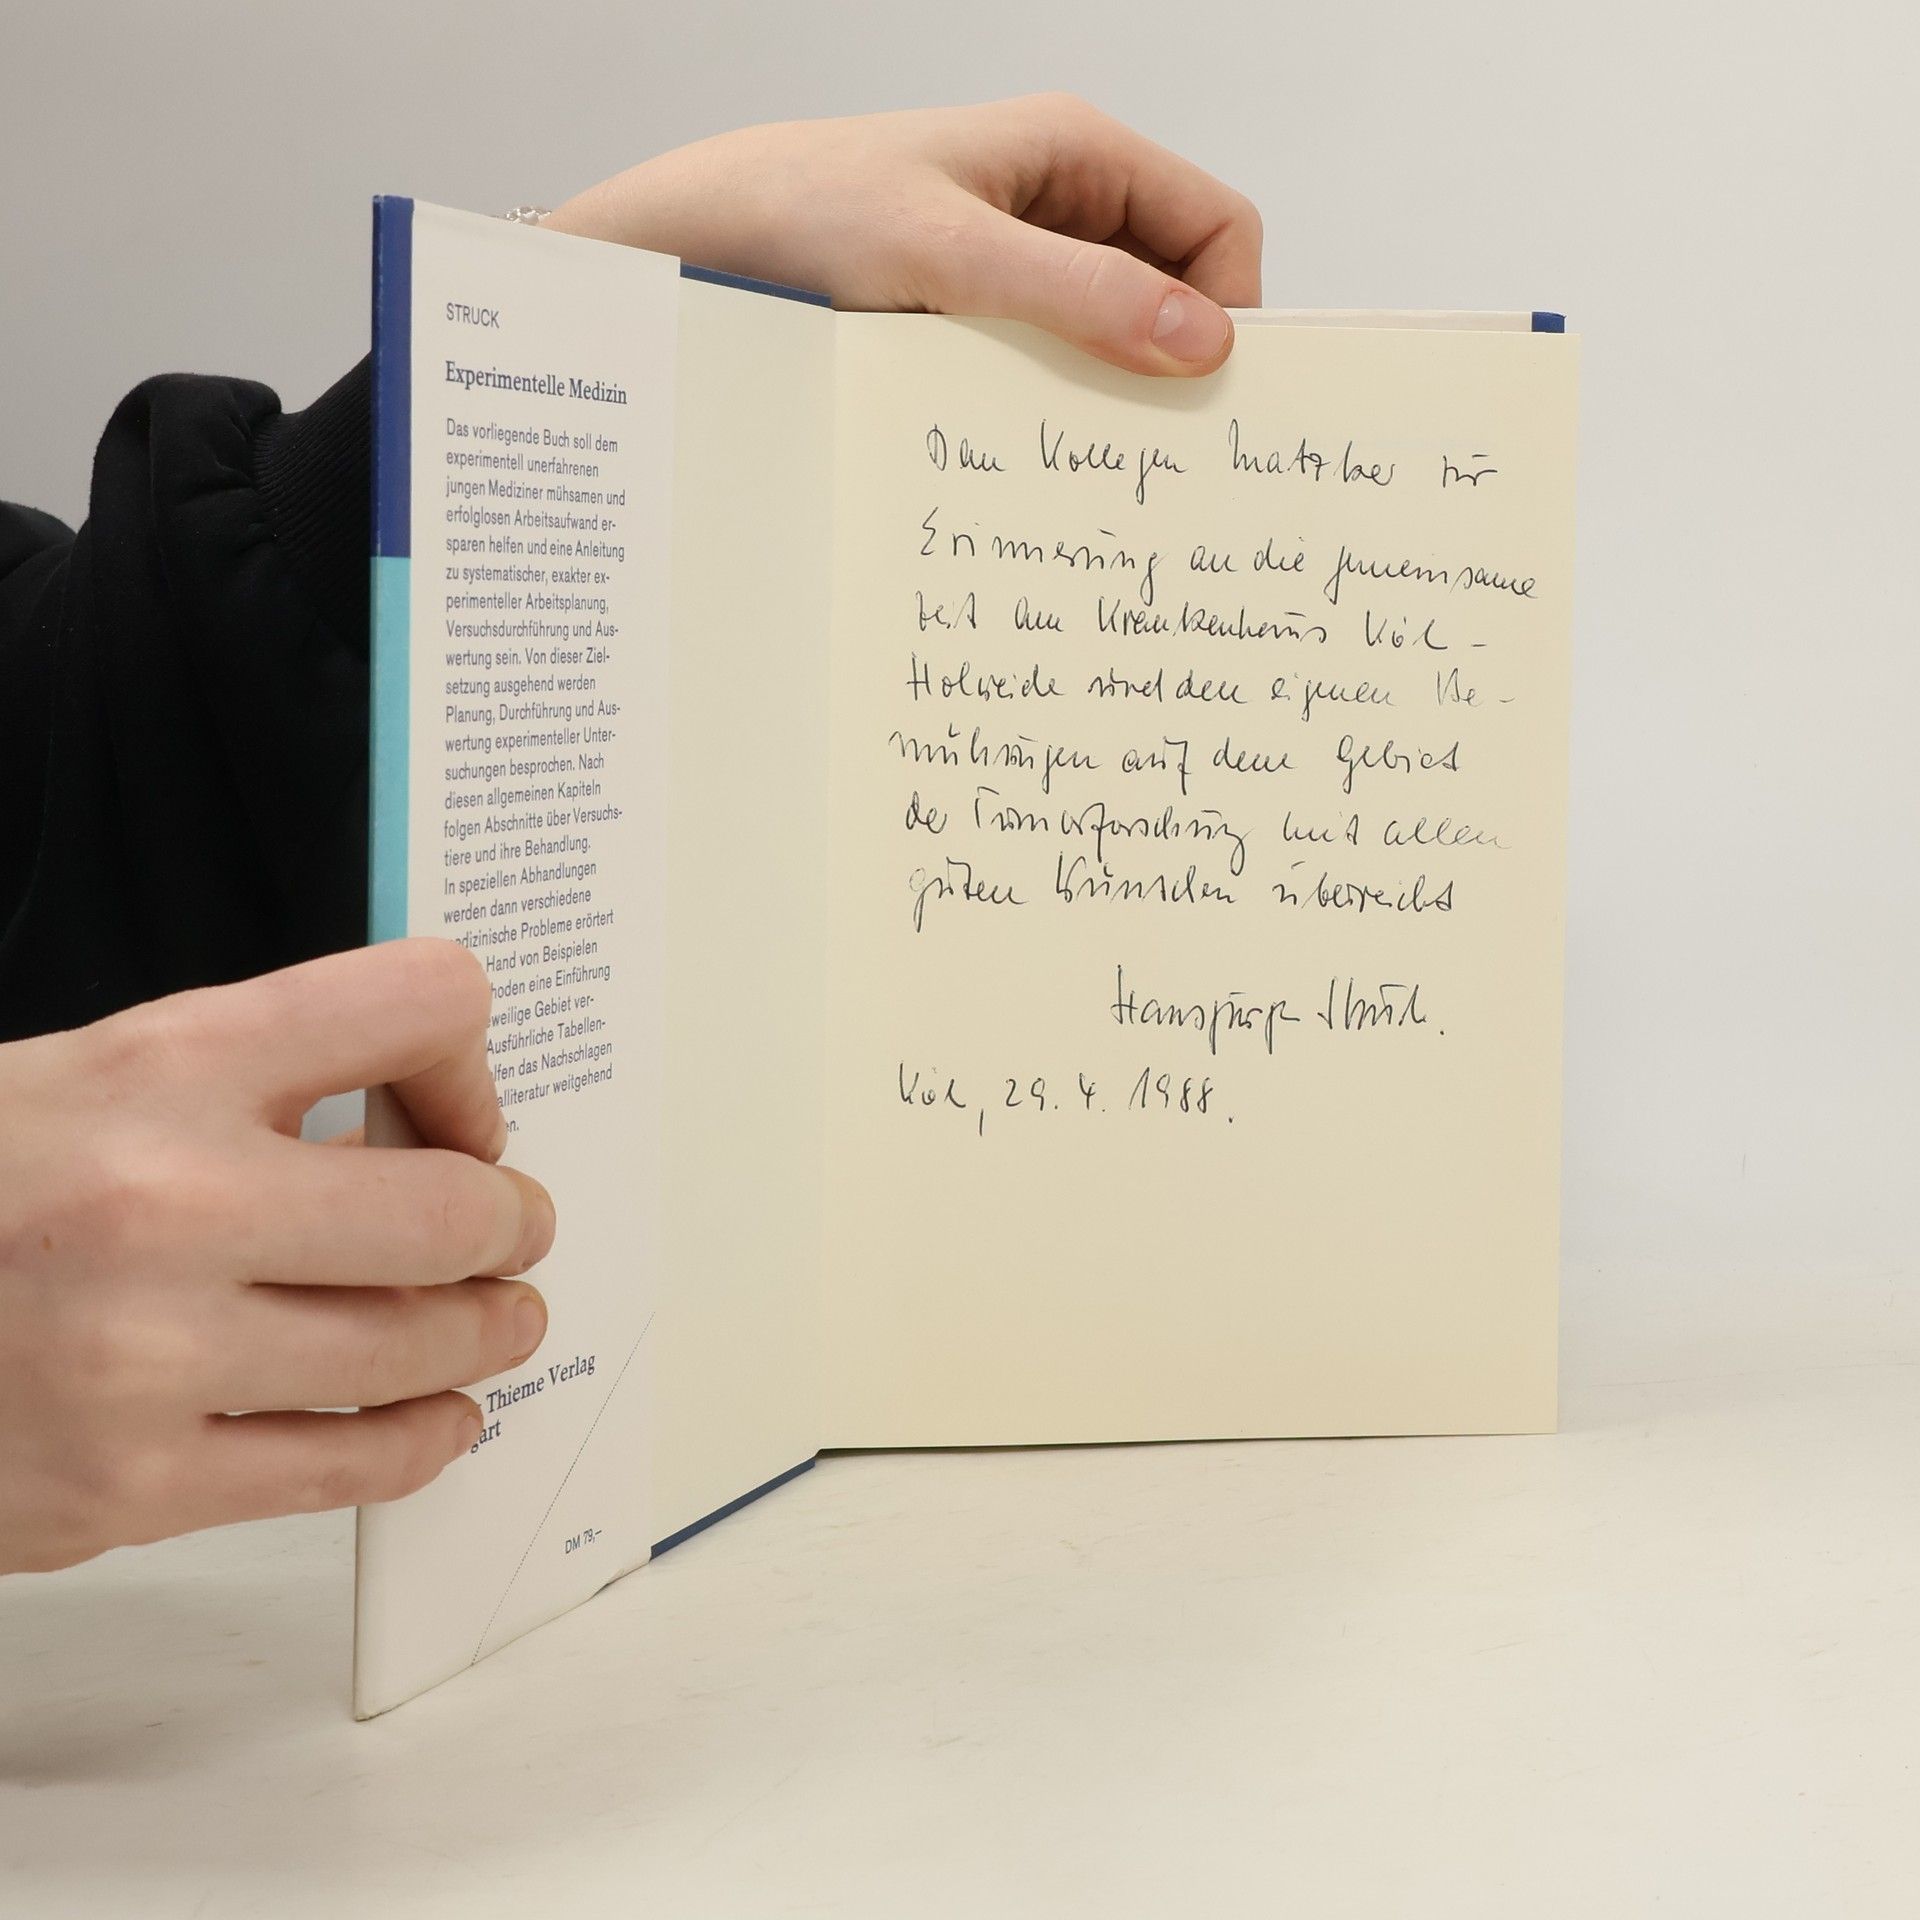 STRUCK
Experimentelle Medizin
Das vorliegende Buch soll dem
experimentell unerfahrenen
jungen Mediziner mühsamen und
erfolglosen Arbeitsaufwand er-
sparen helfen und eine Anleitung
zu systematischer, exakter ex-
perimenteller Arbeitsplanung,
Versuchsdurchführung und Aus-
wertung sein. Von dieser Ziel-
setzung ausgehend werden
Planung, Durchführung und Aus-
wertung experimenteller Unter-
suchungen besprochen. Nach
diesen allgemeinen Kapiteln
folgen Abschnitte über Versuchs-
tiere und ihre Behandlung.
In speziellen Abhandlungen
werden dann verschiedene
edizinische Probleme erörtert
Hand von Beispielen
hoden eine Einführung
eweilige Gebiet ver-
Ausführliche Tabellen-
lfen das Nachschlagen
alliteratur weitgehend
en.
Thieme Verlag
gart
DM 79,–
Dem Kollegen Matzker zur
Erinnerung an die gemeinsame
Zeit am Krankenhaus Köln-
Holweide und den eigenen Be-
mühungen auf dem Gebiet
der Tumorforschung mit allen
guten Wünschen überreicht
Hansjürgen Struck.
Köln, 29. 4. 1988.